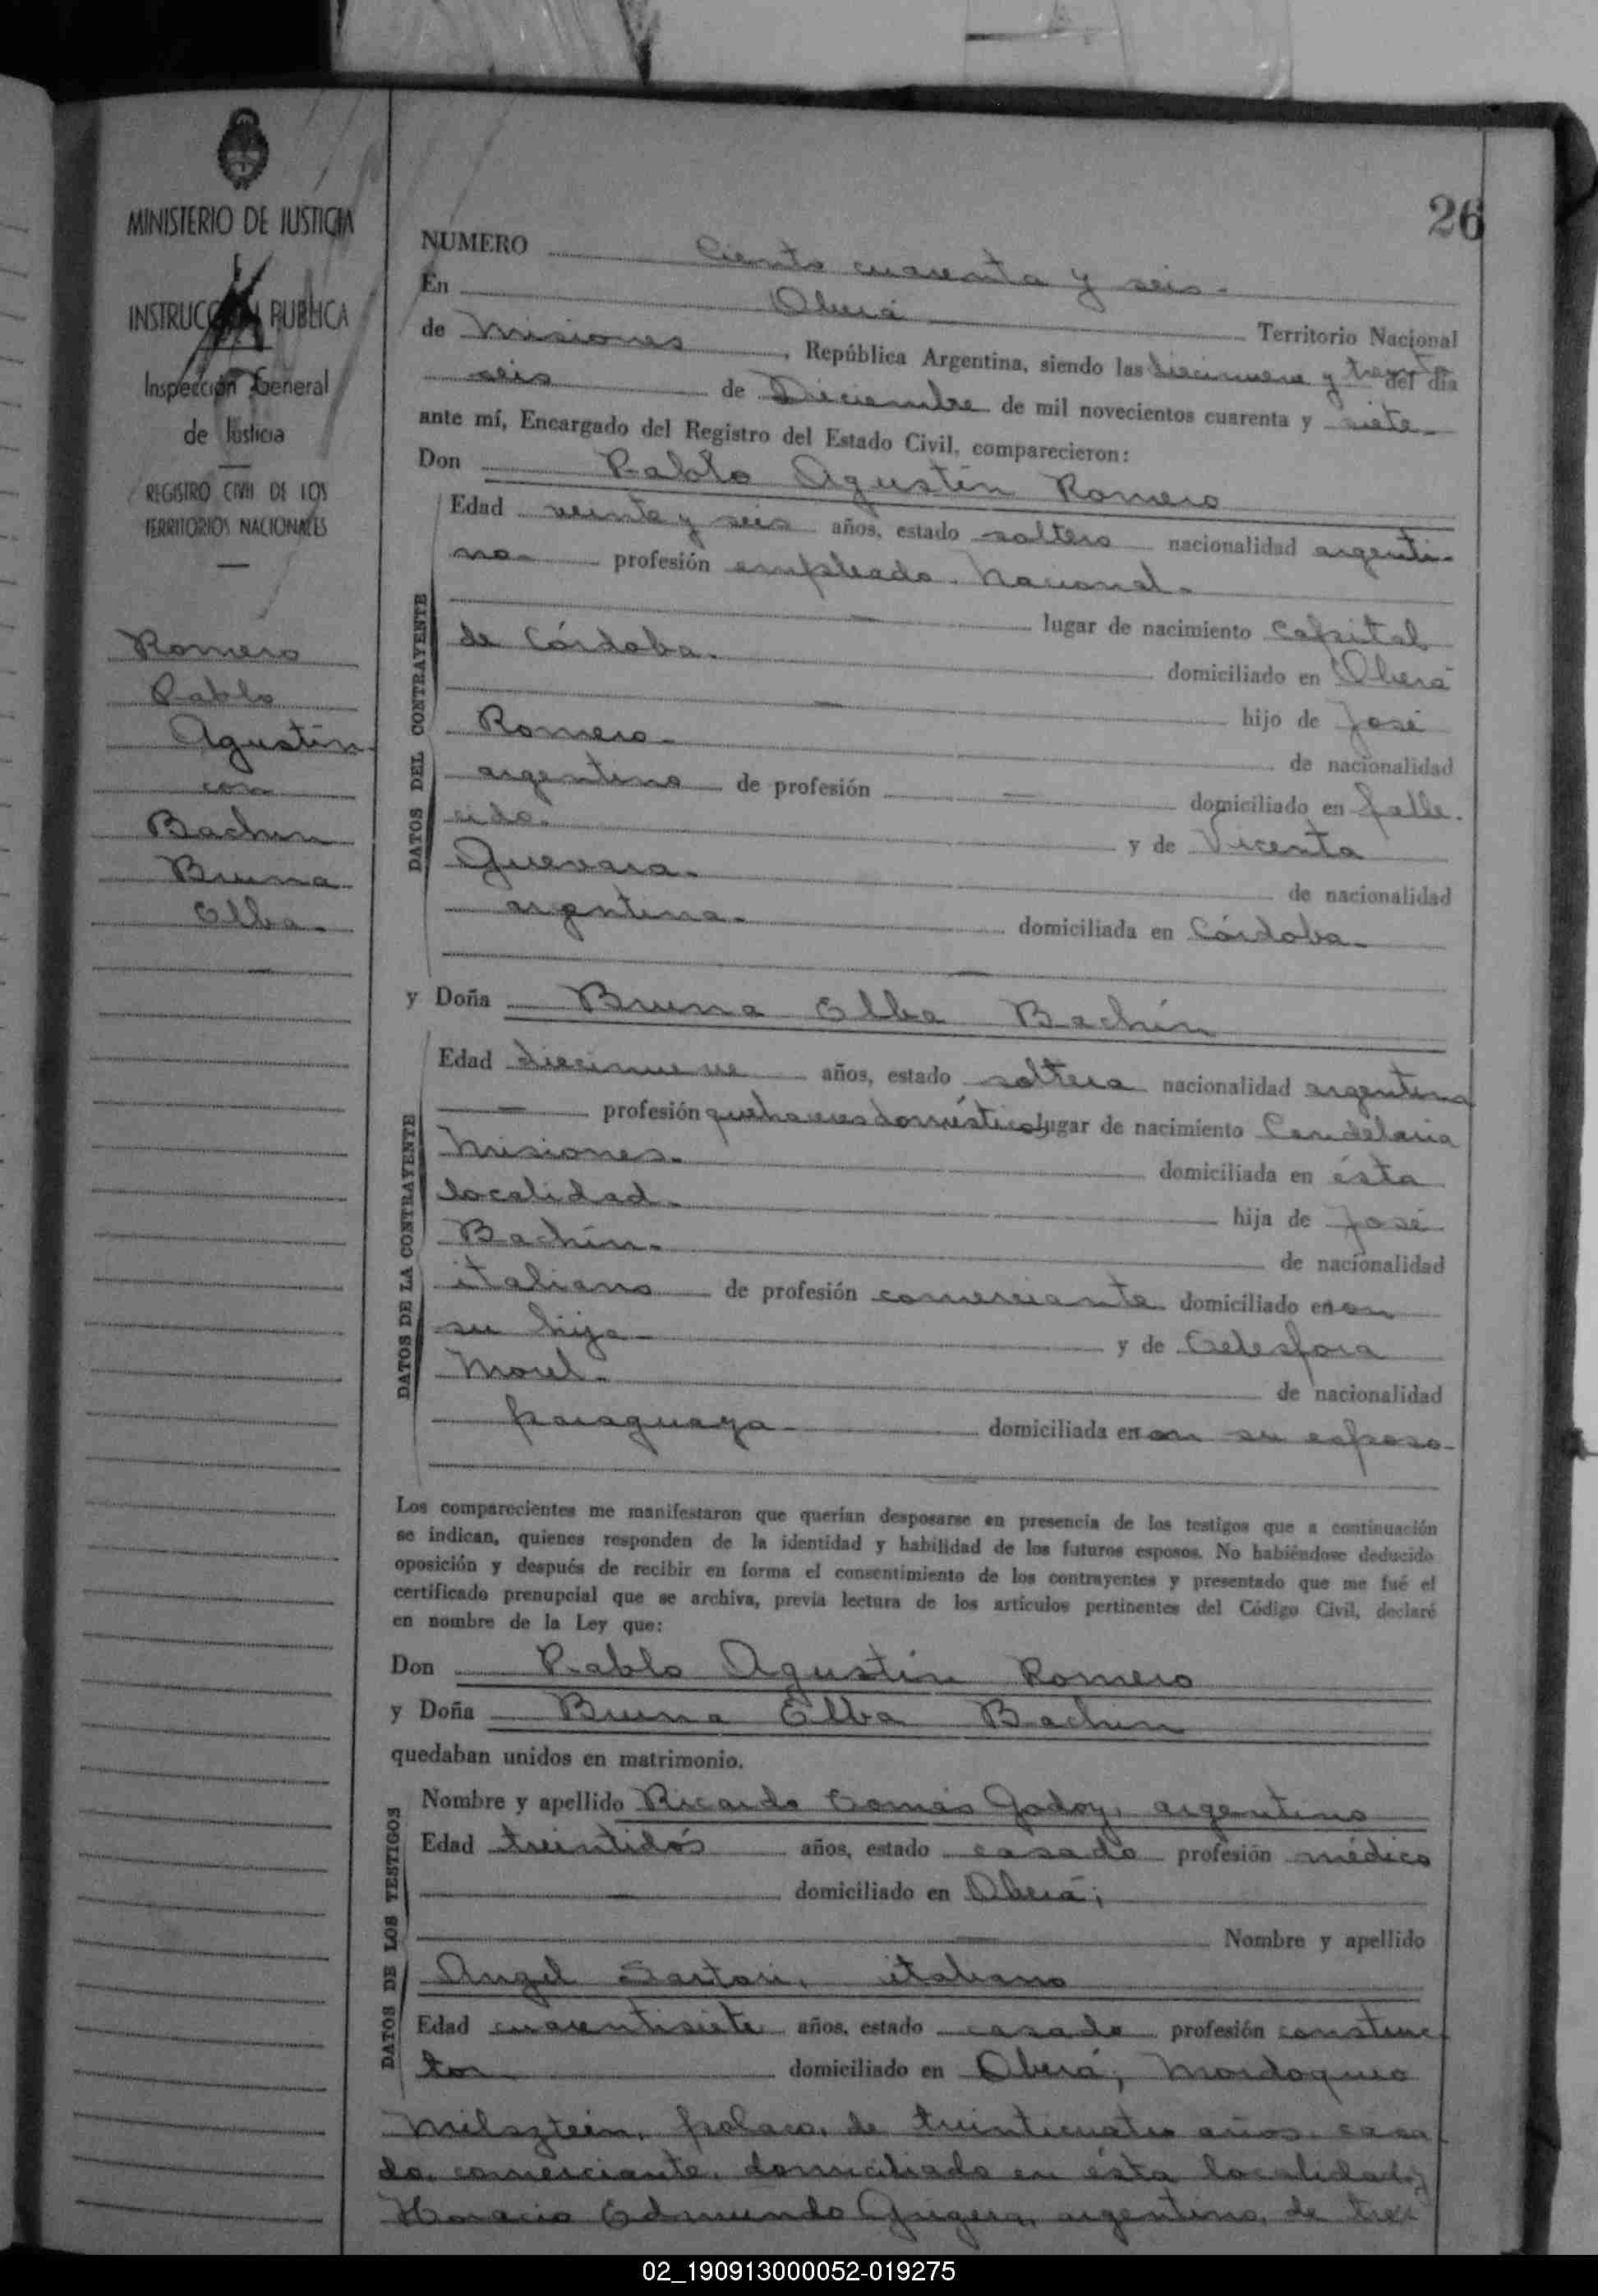 26
MINISTERIO DE JUSTICIA
INSTRUCCION PUBLICA
Inspección General
de Justicia
REGISTRO CIVIL DE LOS
TERRITORIOS NACIONALES
Romero
Pablo
Agustín
con
Bachin
Bruna
Elba.
NUMERO Ciento cuarenta y seis.
En Oberá Territorio Nacional
de Misiones, República Argentina, siendo las diecinueve y treynta del día
seis de Diciembre de mil novecientos cuarenta y siete
ante mí, Encargado del Registro del Estado Civil, comparecieron:
Don Pablo Agustín Romero
DATOS DEL CONTRAYENTE
Edad veinte y seis años, estado soltero nacionalidad argenti-
no profesión empleado Nacional.
lugar de nacimiento Capital
de Córdoba. domiciliado en Oberá
hijo de José
Romero. de nacionalidad
argentino de profesión — domiciliado en falle.
cido. y de Vicenta
Guevara. de nacionalidad
argentina. domiciliada en Córdoba.
y Doña Bruna Elba Bachín
DATOS DE LA CONTRAYENTE
Edad diecinueve años, estado soltera nacionalidad argentina
— profesión quehaceres domésticos lugar de nacimiento Candelaria
Misiones. domiciliada en ésta
localidad. hija de José
Bachín. de nacionalidad
italiano de profesión comerciante domiciliado en con
su hija y de Telesfora
Morel. de nacionalidad
paraguaya domiciliada en con su esposo.
Los comparecientes me manifestaron que querían desposarse en presencia de los testigos que a continuación
se indican, quienes responden de la identidad y habilidad de los futuros esposos. No habiéndose deducido
oposición y después de recibir en forma el consentimiento de los contrayentes y presentado que me fué el
certificado prenupcial que se archiva, previa lectura de los artículos pertinentes del Código Civil, declaré
en nombre de la Ley que:
Don Pablo Agustín Romero
y Doña Bruna Elba Bachin
quedaban unidos en matrimonio.
DATOS DE LOS TESTIGOS
Nombre y apellido Ricardo Tomás Godoy, argentino
Edad treintidós años, estado casado profesión médico
domiciliado en Oberá;
Nombre y apellido
Angel Sartori, italiano
Edad cuarentisiete años, estado casado profesión construc-
tor domiciliado en Oberá; Mardoqueo
Milsztein, polaco, de treinticuatro años, casa
do, comerciante, domiciliado en ésta localidad;
Horacio Edmundo Grigera, argentino, de trei
02_190913000052-019275